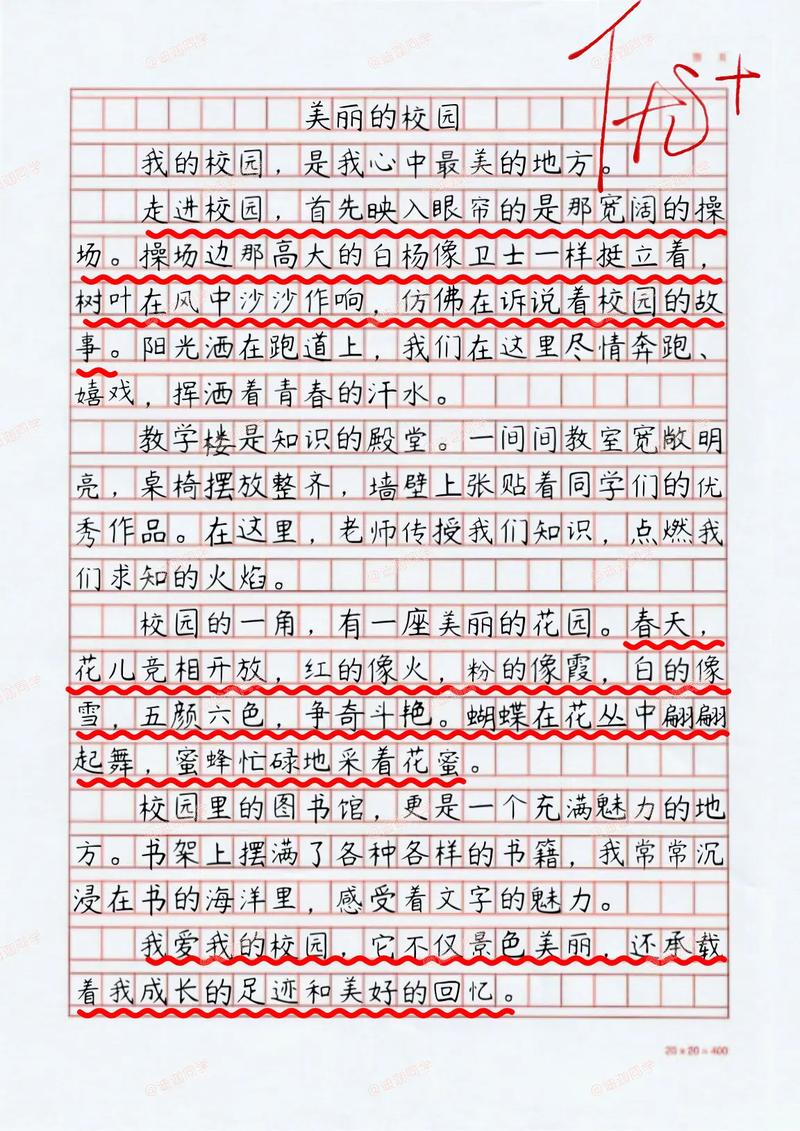 优+
美丽的校园
我的校园，是我心中最美的地方。
走进校园，首先映入眼帘的是那宽阔的操
场。操场边那高大的白杨像卫士一样挺立着，
树叶在风中沙沙作响，仿佛在诉说着校园的故
事。阳光洒在跑道上，我们在这里尽情奔跑、
嬉戏，挥洒着青春的汗水。
教学楼是知识的殿堂。一间间教室宽敞明
亮，桌椅摆放整齐，墙壁上张贴着同学们的优
秀作品。在这里，老师传授我们知识，点燃我
们求知的火焰。
校园的一角，有一座美丽的花园。春天，
花儿竞相开放，红的像火，粉的像霞，白的像
雪，五颜六色，争奇斗艳。蝴蝶在花丛中翩翩
起舞，蜜蜂忙碌地采着花蜜。
校园里的图书馆，更是一个充满魅力的地
方。书架上摆满了各种各样的书籍，我常常沉
浸在书的海洋里，感受着文字的魅力。
我爱我的校园，它不仅景色美丽，还承载
着我成长的足迹和美好的回忆。
20×20=400